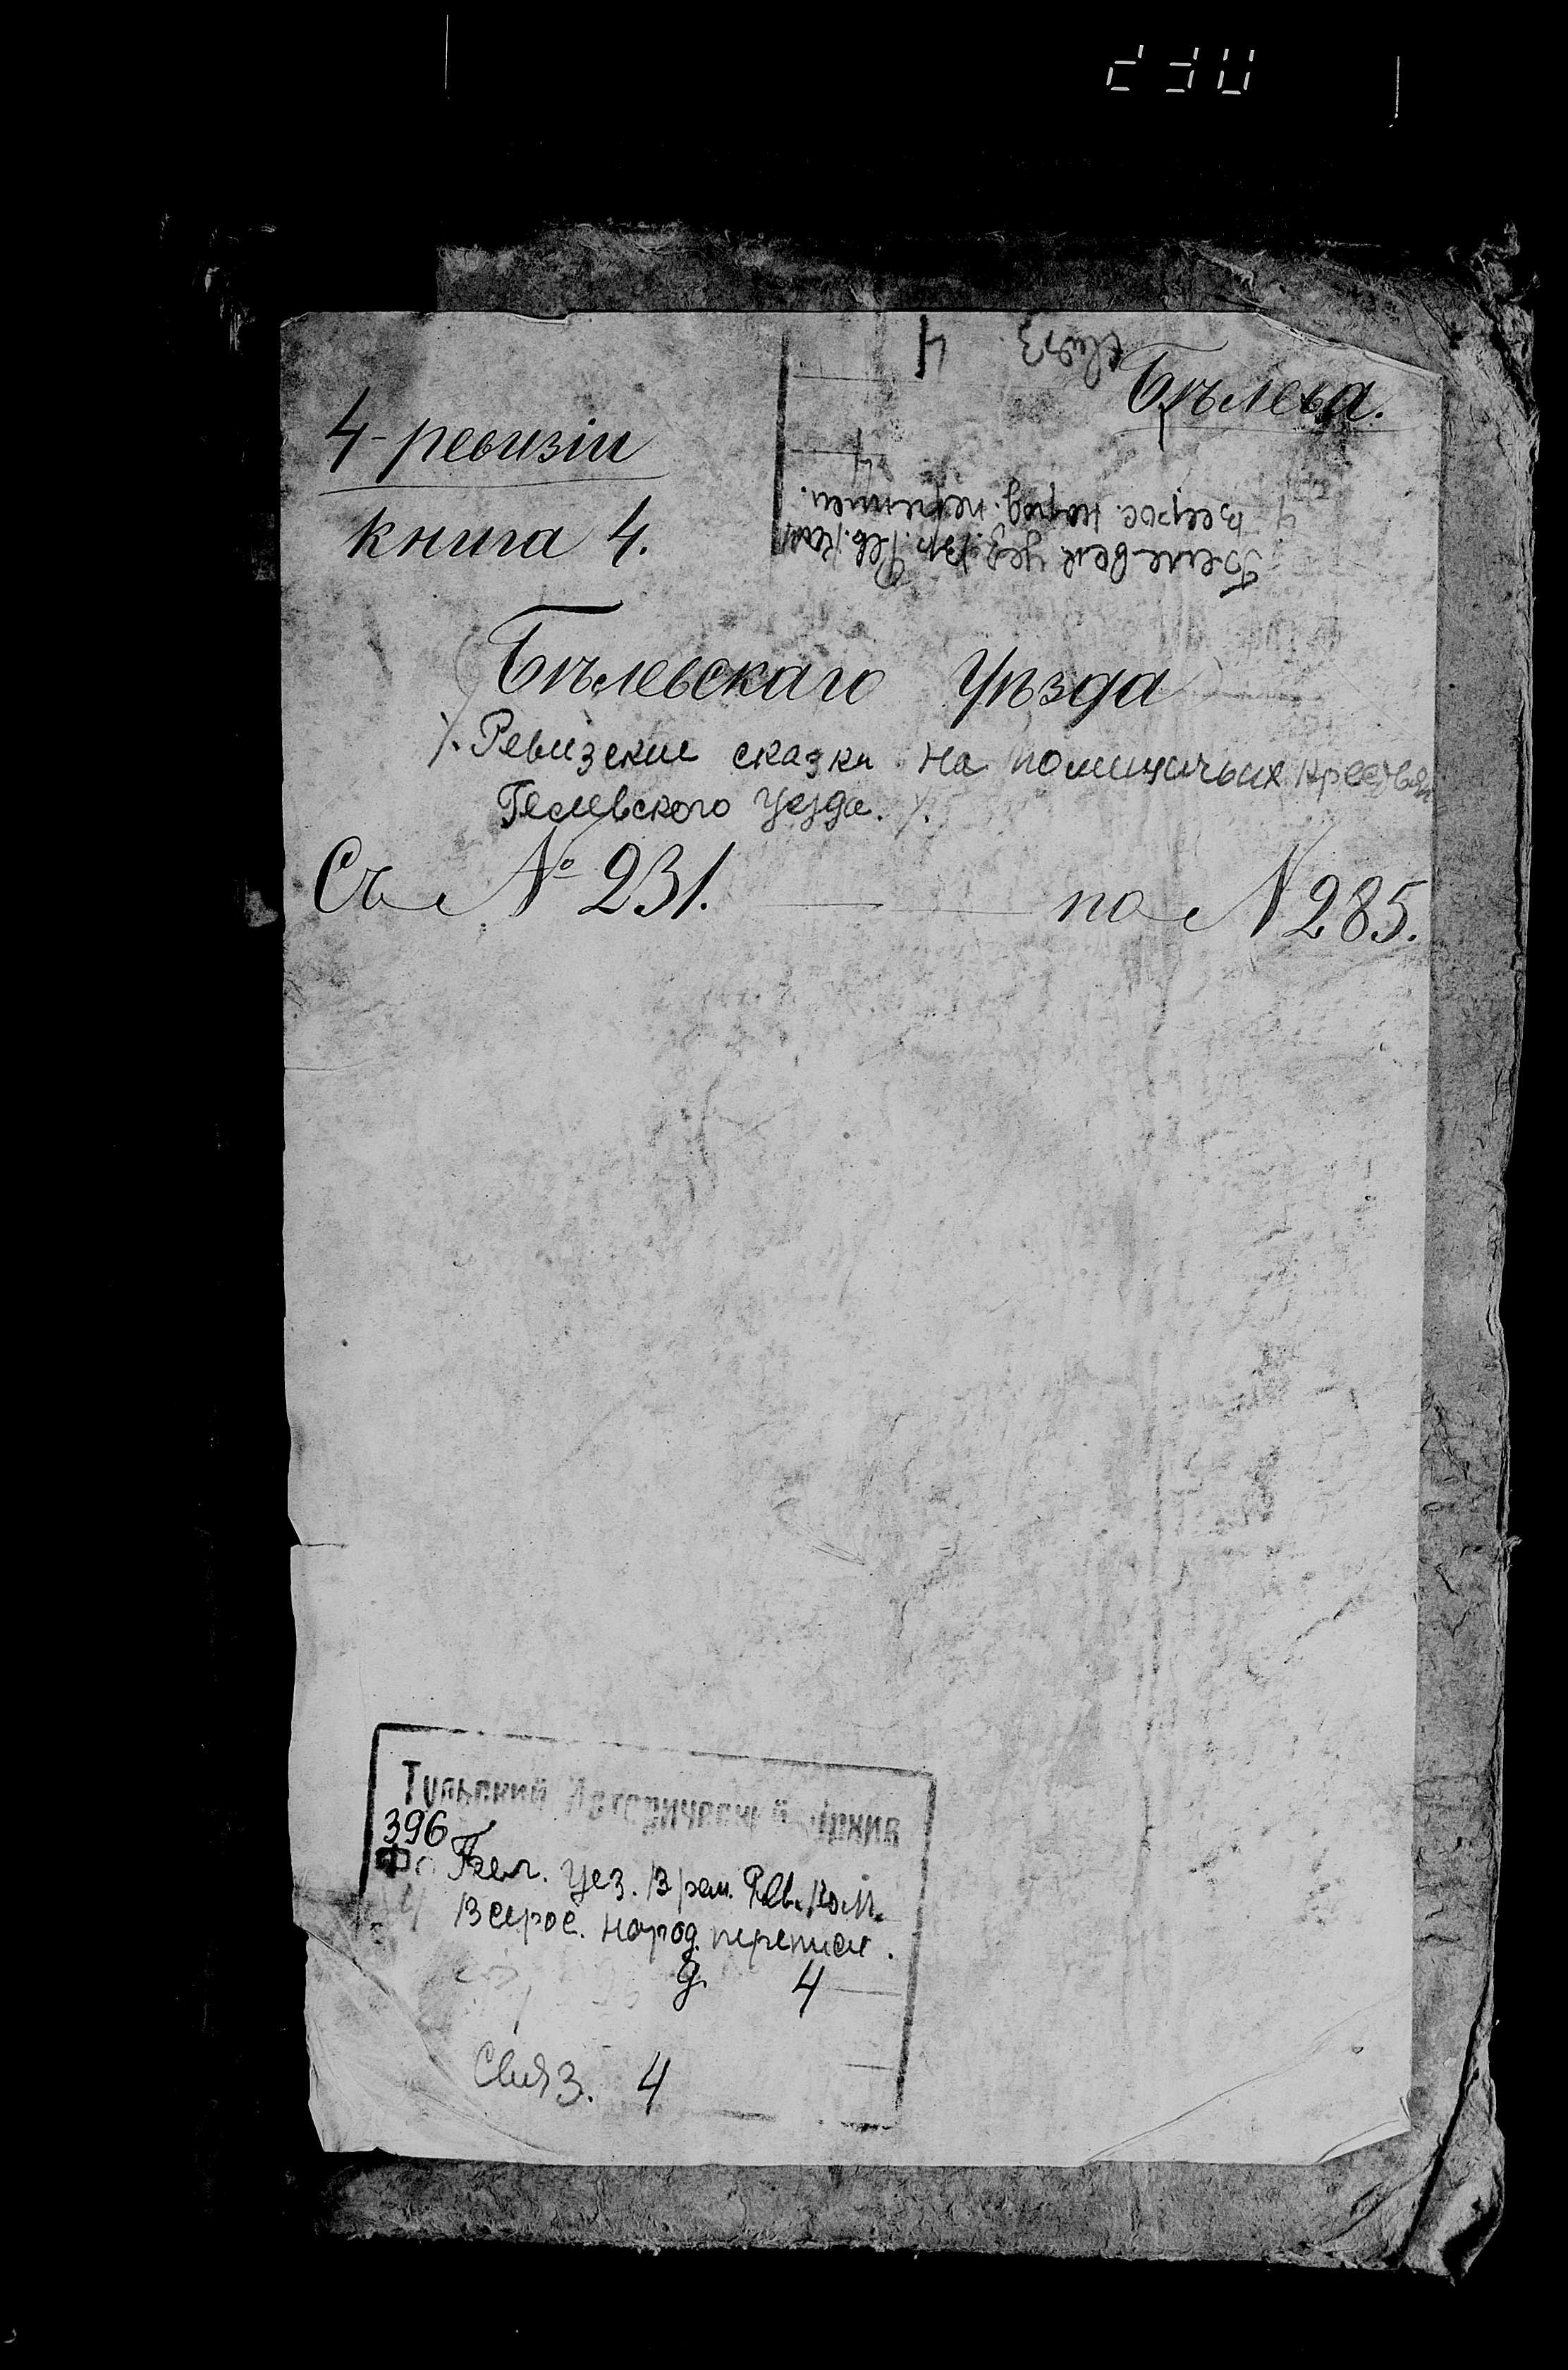 Бѣлева.
4-ревизіи
книга 4.
Связ. 4
4
Белевск. уез. Вр. Рев. Ком.
Всерос. народ. переписи.
Бѣлевскаго Уѣзда
Ревизские сказки на помещичьих крестьян
Белевского уезда.
Съ № 231. — по № 285.
Тульский Исторический Архив
396
Ф. Бел. уез. Врем. Рев. Ком.
Всерос. народ. переписи.
д. 4
Связ. 4